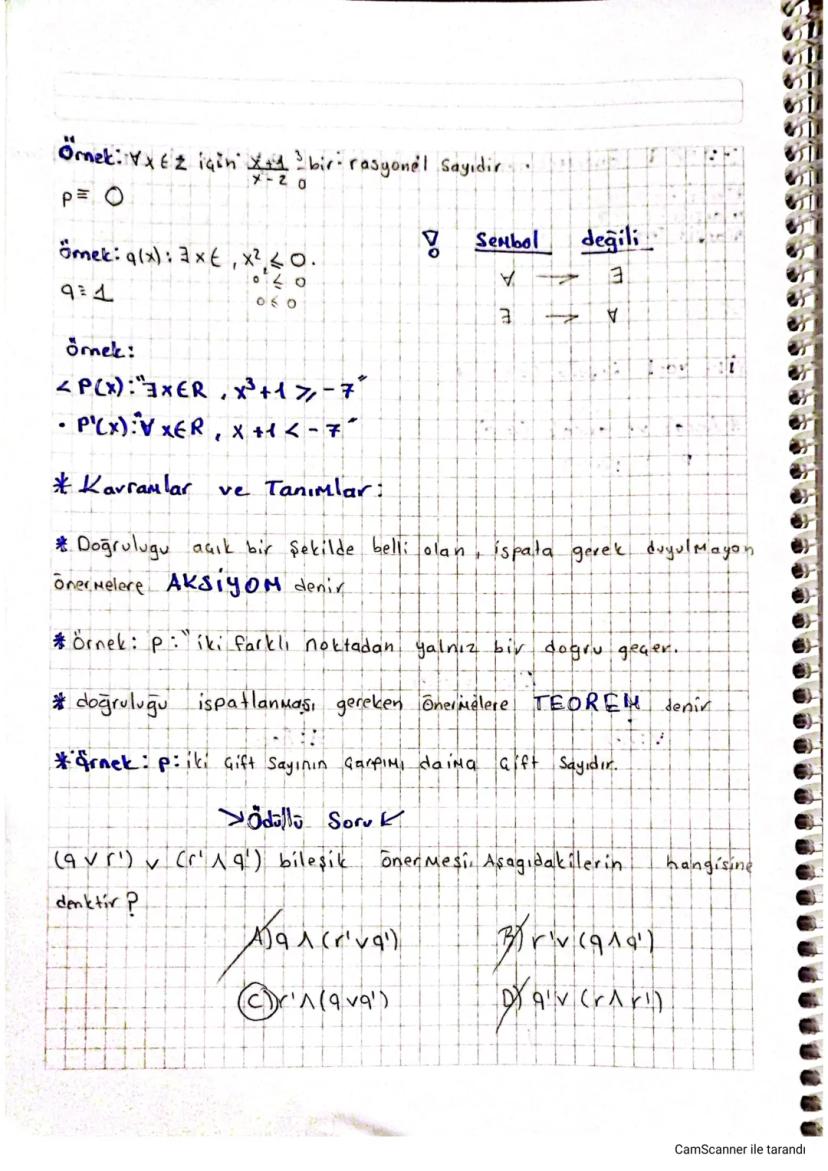 Örnek: ∀x∈Z için x+1/x-2 3/0 bir rasyonel sayıdır.
p≡ 0
Örnek: q(x): ∃x∈ , x² ⩽ 0.
0² ≤ 0
q≡1
0 ≤ 0
! Sembol değili
∀ → ∃
∃ → ∀
Örnek:
< P(x): "∃x∈R , x³+1 ⩾ -7"
• P'(x): "∀x∈R , x +1 < -7"
* Kavramlar ve Tanımlar:
* Doğrulugu acık bir şekilde belli olan, ispata gerek duyulmayan
önermelere AKSİYOM denir
* Örnek: p: "iki farklı noktadan yalnız bir doğru geçer.
* doğruluğu ispatlanması gereken önermelere TEOREM denir
* Örnek: p: iki Çift Sayının Çarpımı daima Çift Sayıdır.
↘Ödüllü Soru↙
(q ∨ r') ∨ (r' ∧ q') bileşik önermesi Aşagıdakilerin hangisine
denktir?
A) q ∧ (r' ∨ q') B) r' ∨ (q ∧ q')
C) r' ∧ (q ∨ q') D) q' ∨ (r ∧ r')
CamScanner ile tarandı